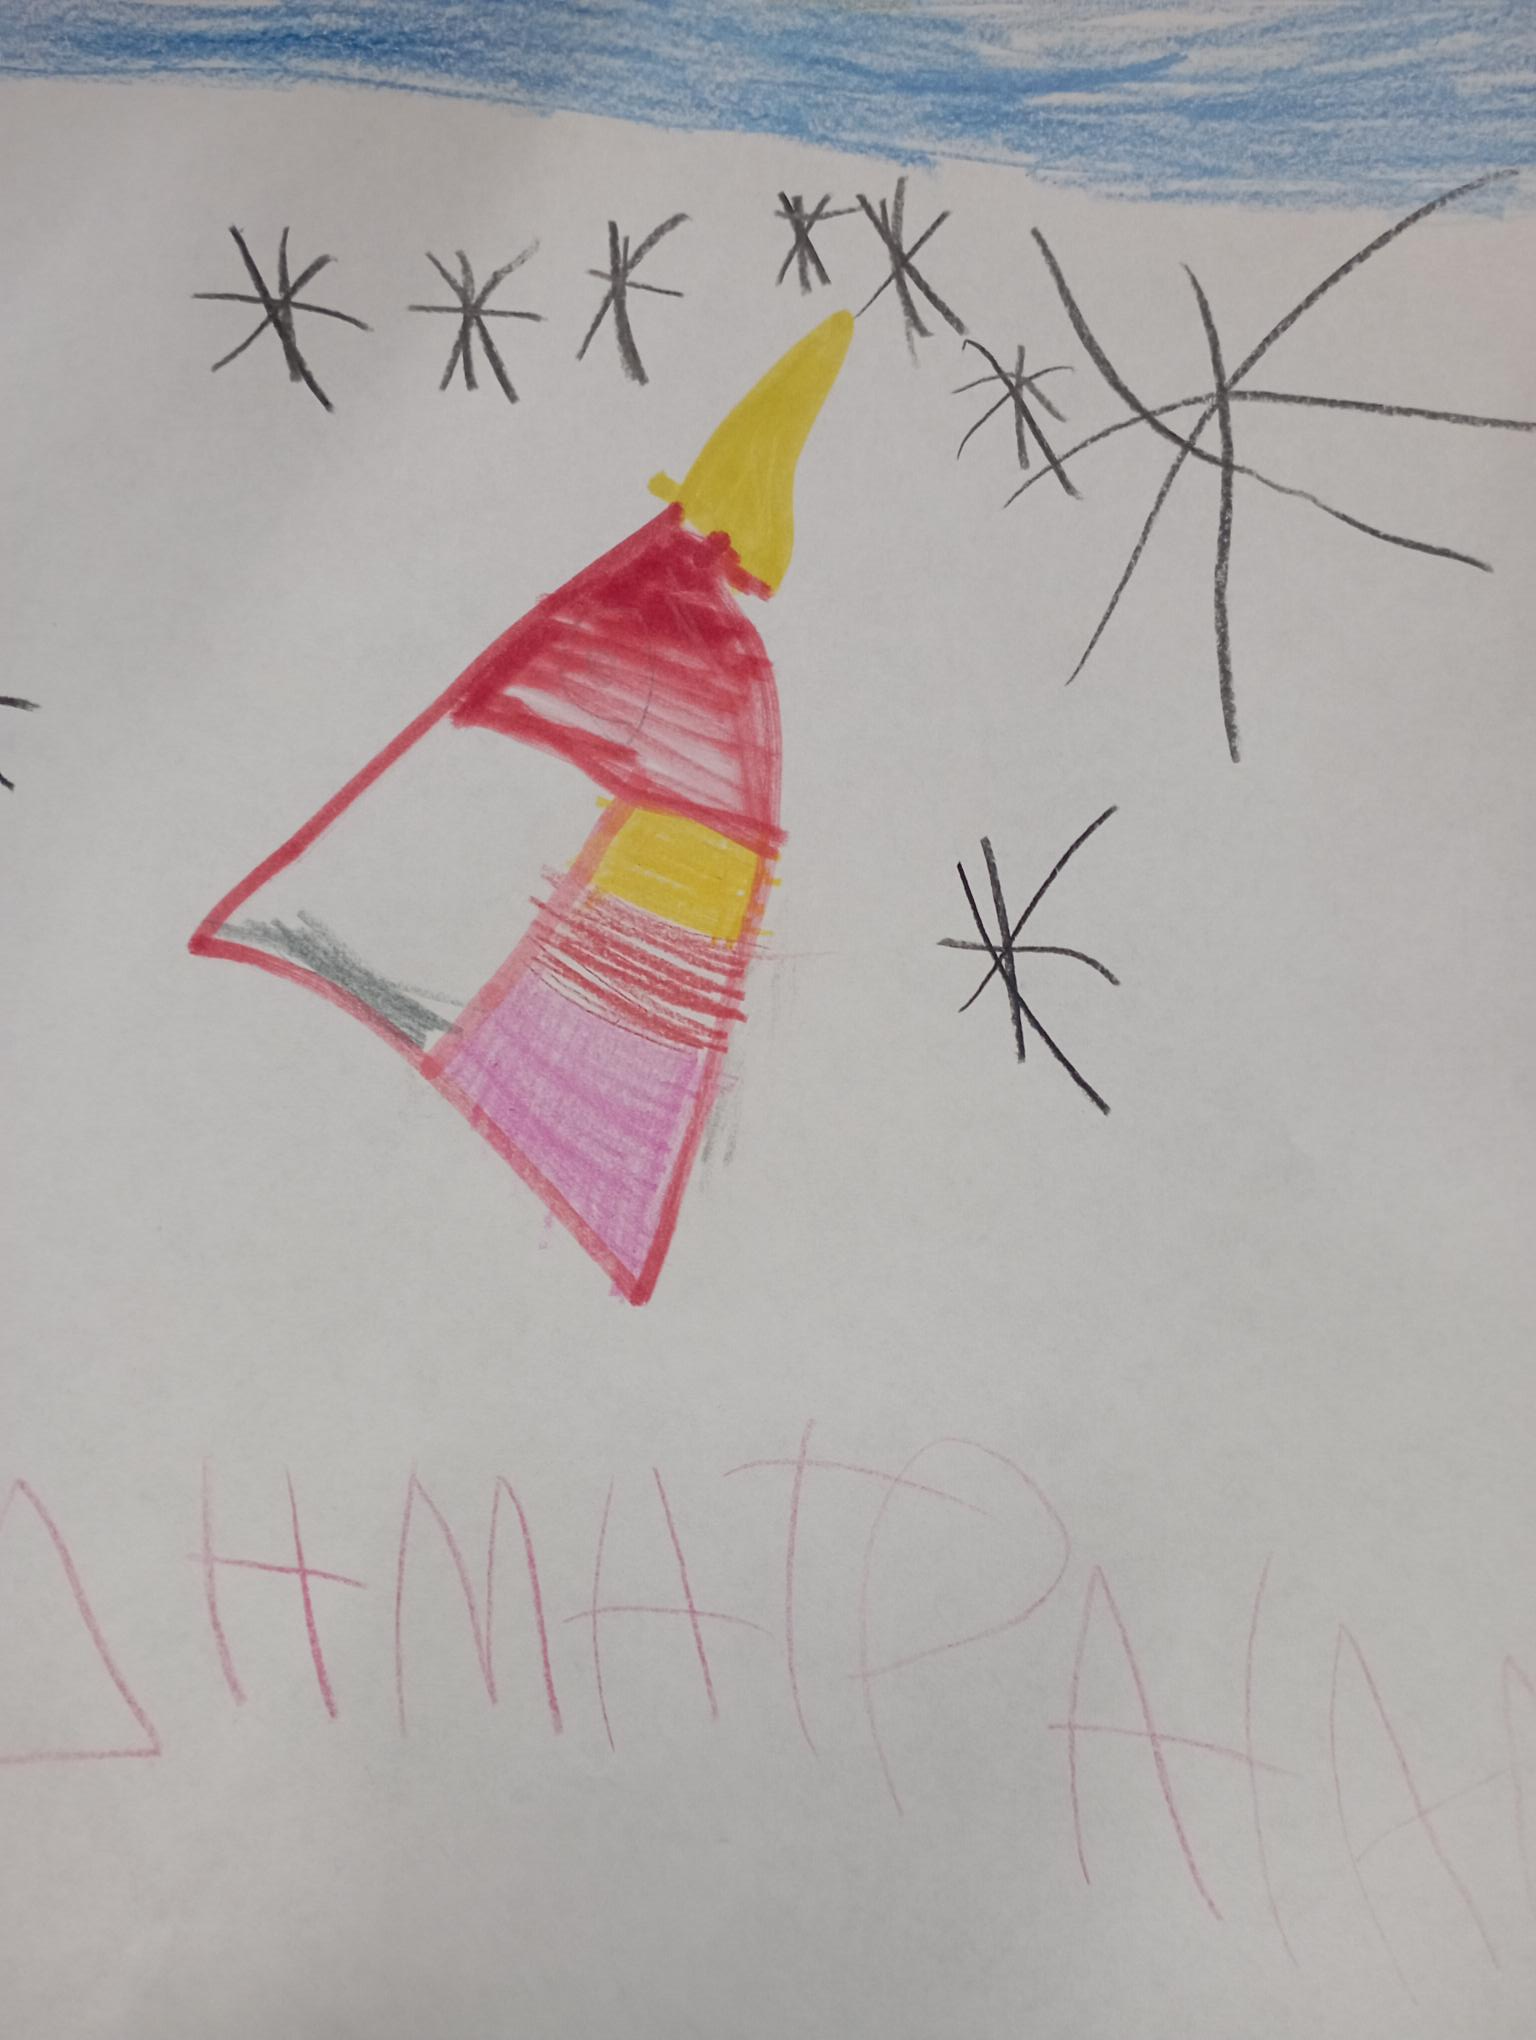 ΔΗΜΗΤΡΑΙΑ